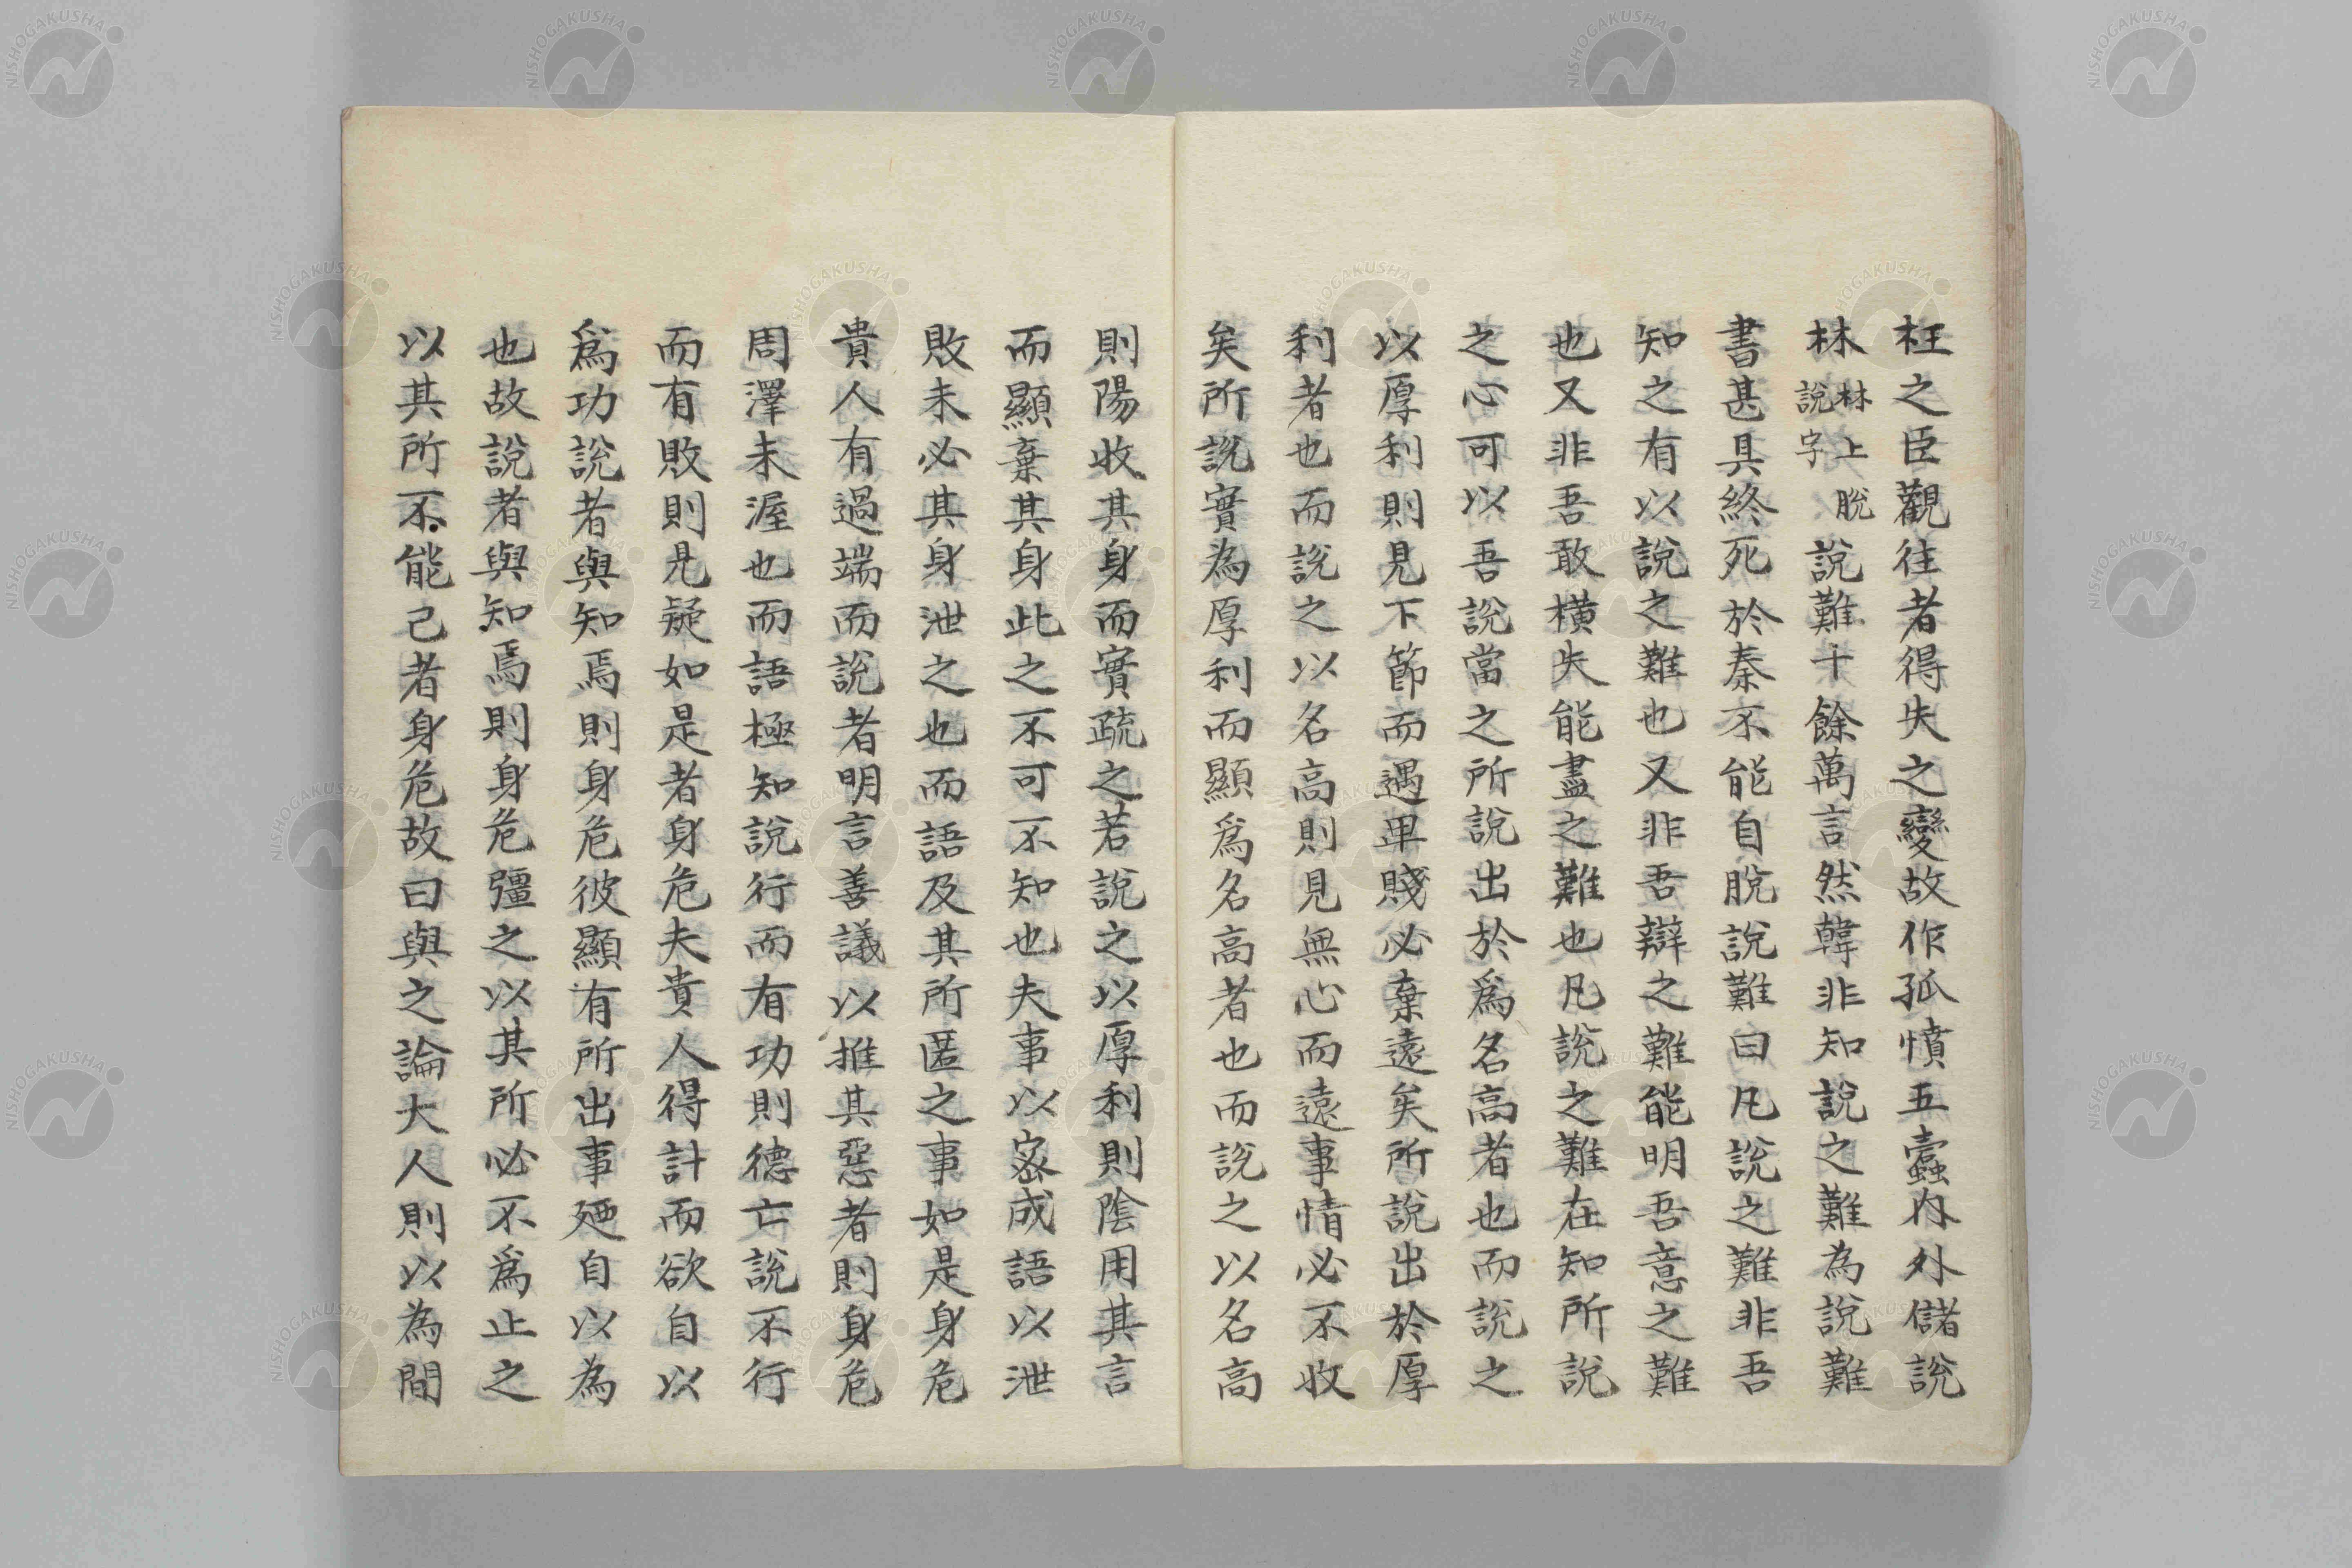 枉之臣觀往者得失之變故作孤憤五蠹内外儲說
林林上脫說字說難十餘萬言然韓非知說之難為說難
書甚具終死於秦不能自脫說難曰凡說之難非吾
知之有以說之難也又非吾辯之難能明吾意之難
也又非吾敢橫失能盡之難也凡說之難在知所說
之心可以吾說當之所說出於爲名高者也而說之
以厚利則見下節而遇卑賤必棄遠矣所說出於厚
利者也而說之以名高則見無心而遠事情必不收
矣所說實為厚利而顯爲名高者也而說之以名高
則陽收其身而實疏之若說之以厚利則陰用其言
而顯棄其身此之不可不知也夫事以密成語以泄
敗未必其身泄之也而語及其所匿之事如是身危
貴人有過端而說者明言善議以推其惡者則身危
周澤未渥也而語極知說行而有功則德亡說不行
而有敗則見疑如是者身危夫貴人得計而欲自以
爲功說者與知焉則身危彼顯有所出事廼自以為
也故說者與知焉則身危彊之以其所必不爲止之
以其所不能己者身危故曰與之論大人則以為間
NISHOGAKUSHA